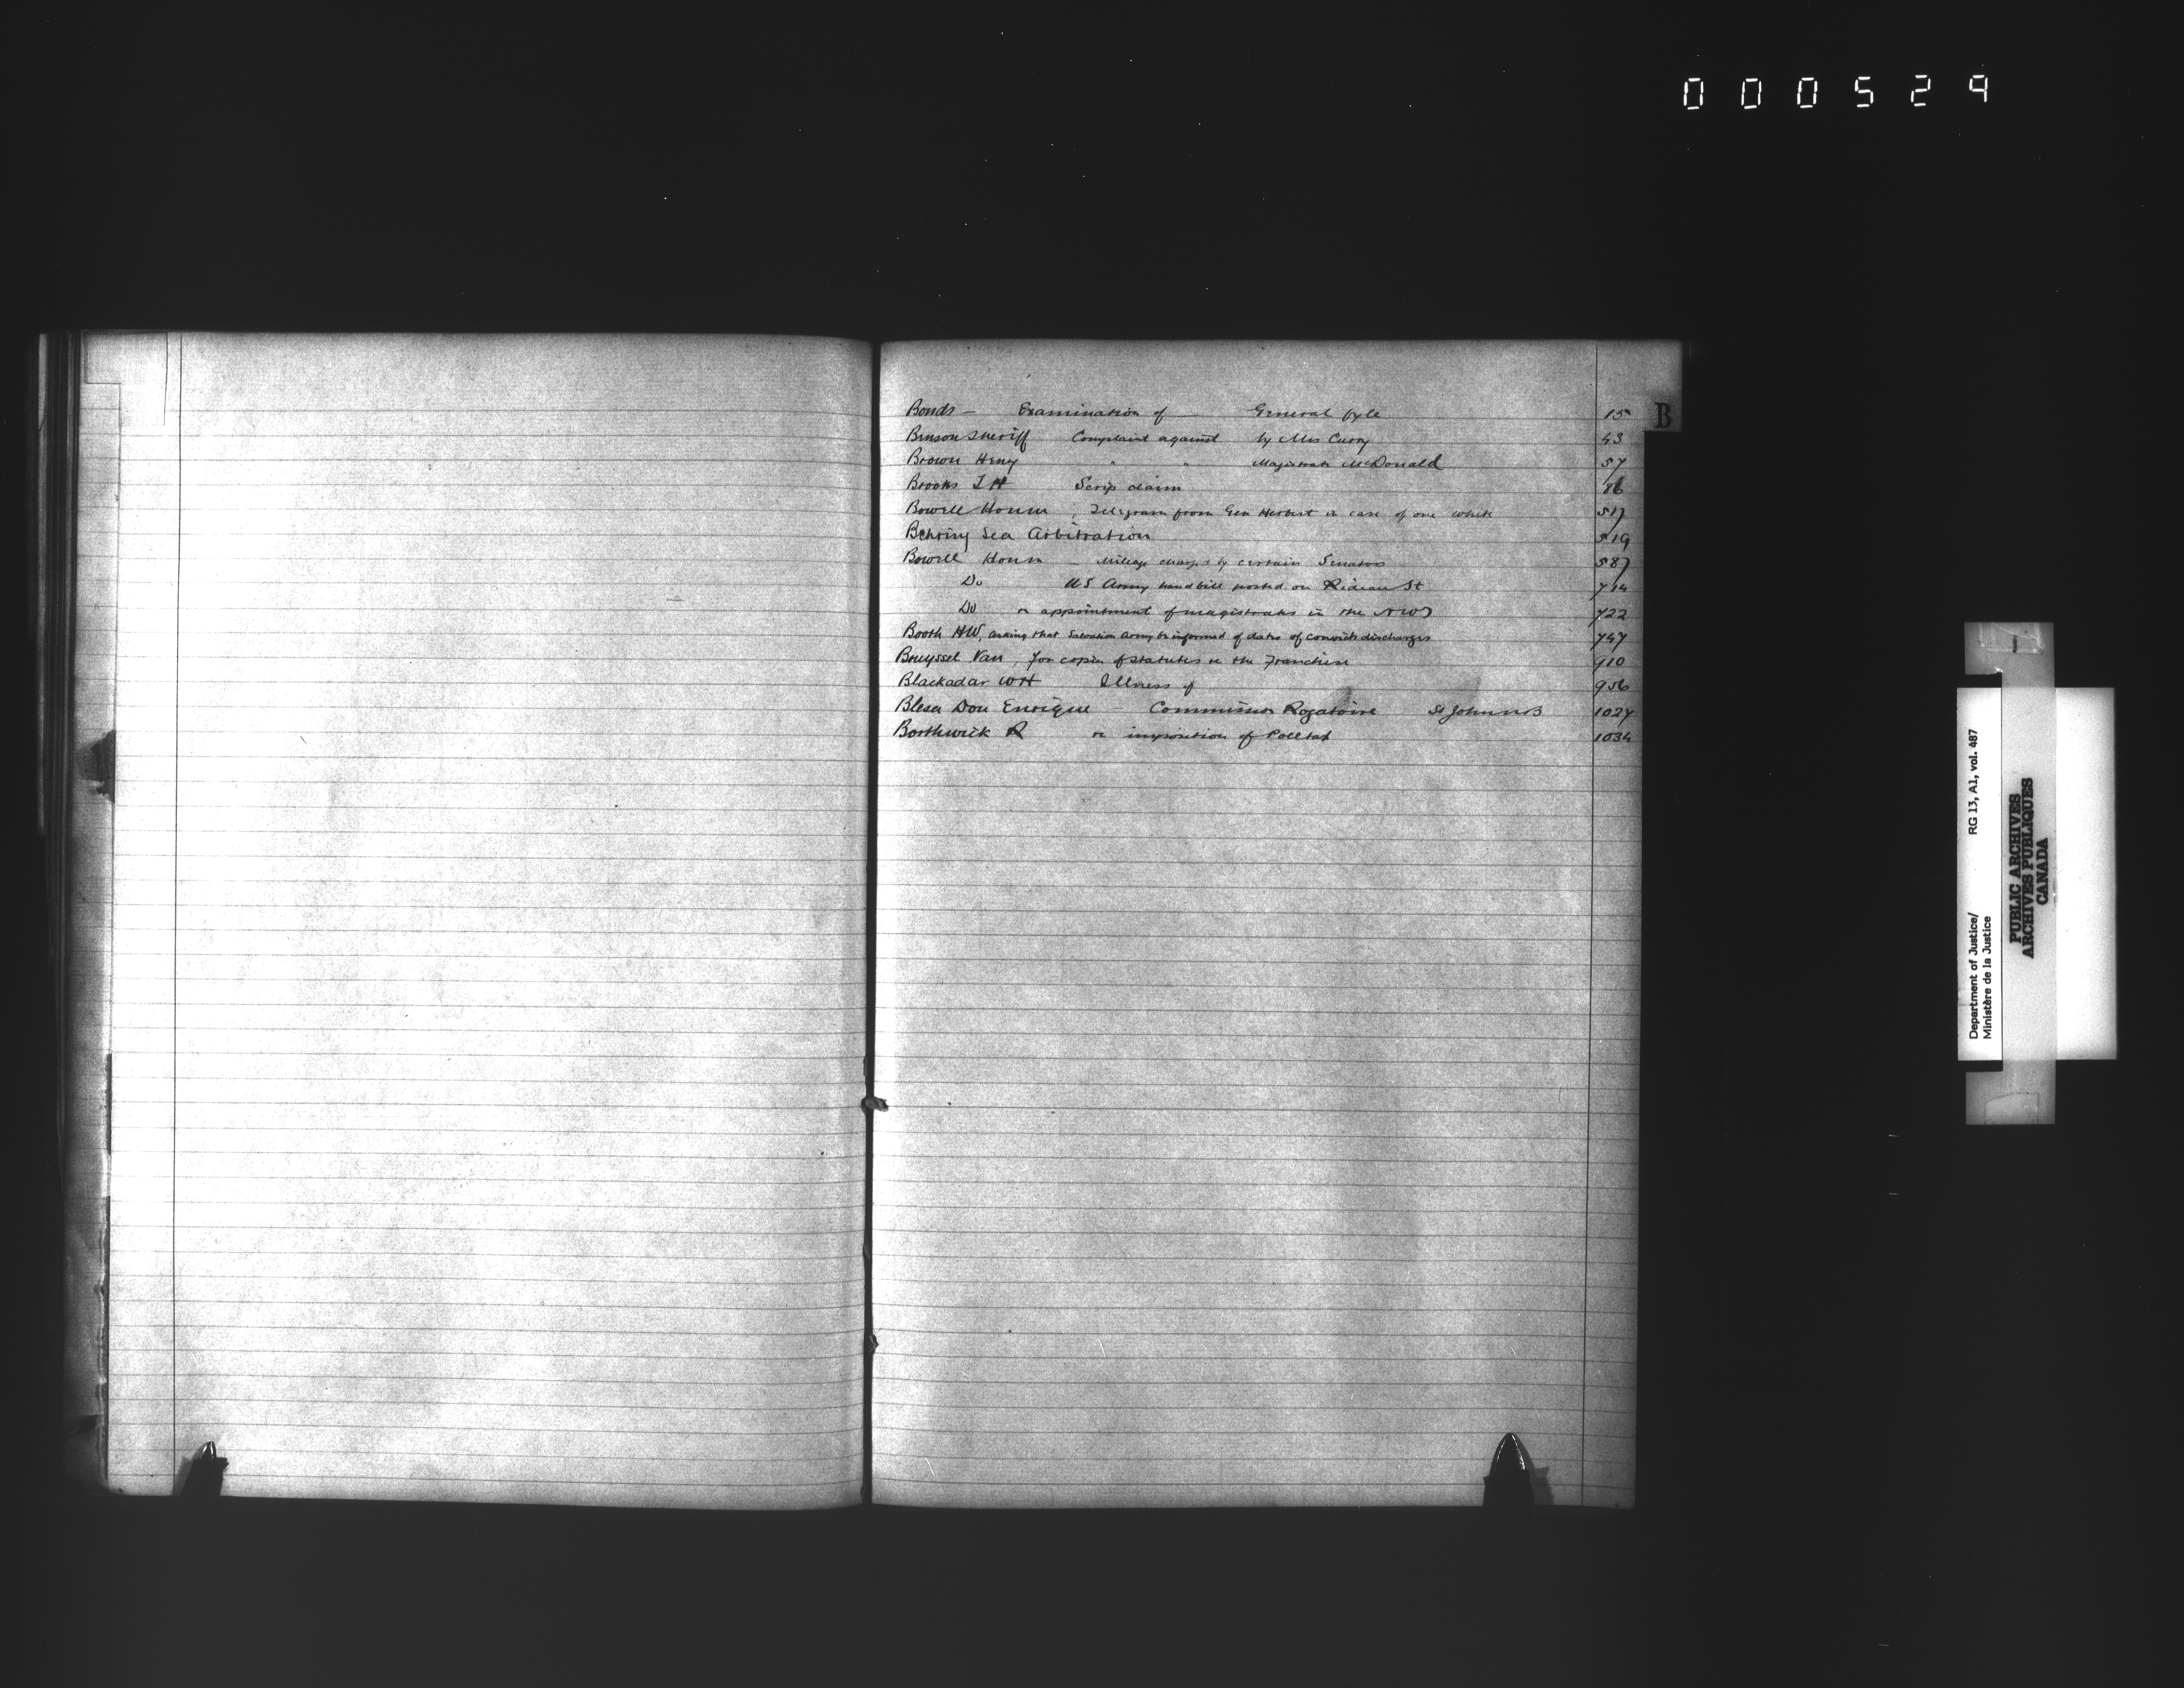 000529
B
Bonds — Examination of — General fyle 15
Benson Sheriff Complaint against by Mrs Curry 43
Brown Henry " " Magistrate McDonald 57
Brooks J H Scrip claim 86
Bowell Honm, Telegram from Gen Herbert in case of one White 517
Behring Sea Arbitration 519
Bowell Honm — Mileage charged by certain Senators 587
Do US Army handbill posted on Rideau St 714
Do re appointment of magistrates in the NWT 722
Booth HW, asking that Salvation Army be informed of dates of convicts discharges 747
Bruyssel Van, for copies of Statutes re the Franchise 910
Blackadar WH Illness of 956
Blesa Don Enrique — Commission Rogatoire St John NB 1027
Borthwick R re imposition of Polltax 1034
Department of Justice/ RG 13, A1, vol. 487
Ministère de la Justice
PUBLIC ARCHIVES
ARCHIVES PUBLIQUES
CANADA